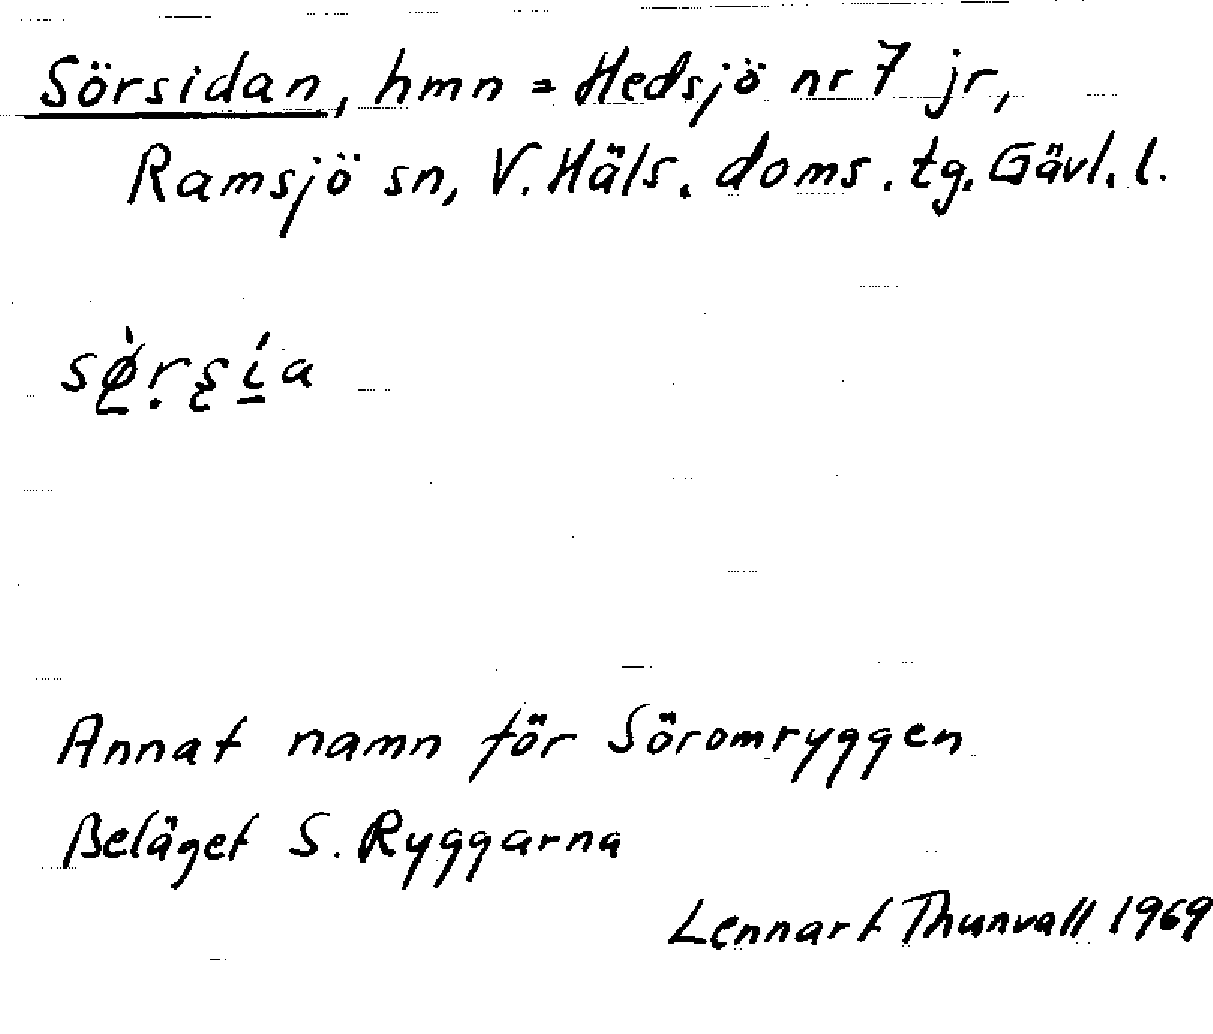 Sörsidan, hmn = Hedsjö nr 7 jr,
Ramsjö sn, V. Häls. doms. tg. Gävl. l.
sø̀rsía
Annat namn för Söromryggen
Beläget S. Ryggarna
Lennart Thunvall 1969